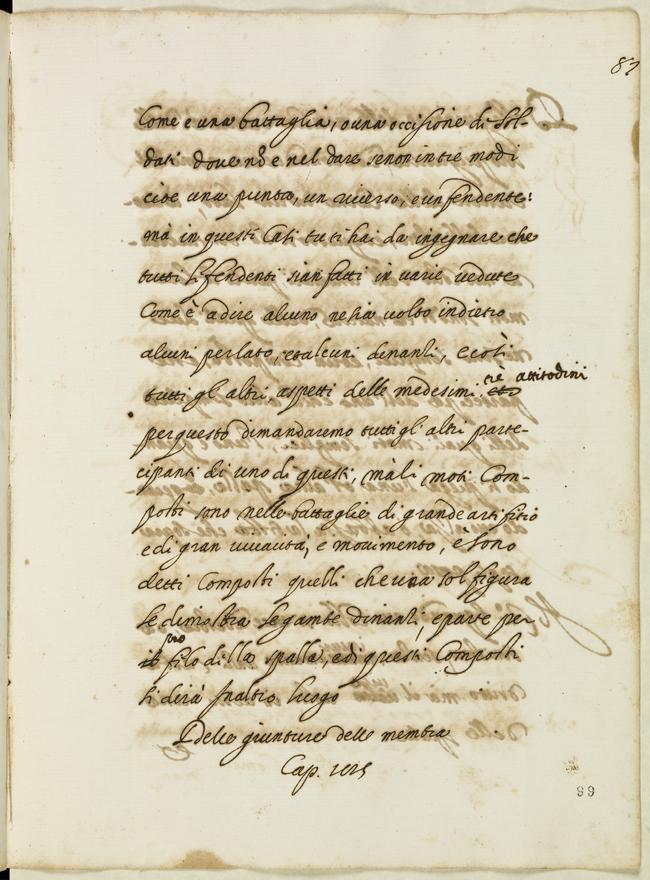 87
Come e una battaglia, o una occisione di sol-
dati dove nō e nel dare se non in tre modi
cioe una punta, un riverso, e un fendente:
mà in questi Casi tu ti hai da ingegnare che
tutti li fendenti sian fatti in varie vedute
Come è a dire alcuno ne sia volto indietro
alcuni per lato, et alcuni denanti, e così
tutti gl altri, aspetti delle medesimi tre attitudini
per questo dimandaremo tutti gl' altri parte-
cipanti di uno di questi, mà li moti Com-
posti sono nelle battaglie di grande artifitio
e di gran vivacità, e movimento, e sono
detti Composti quelli che una sol figura
se dimostra le gambe dinanti, e parte per
il pro filo della spalla, e di questi Composti
si dirà in altro luogo
Delle giunture delle membra
Cap.
99